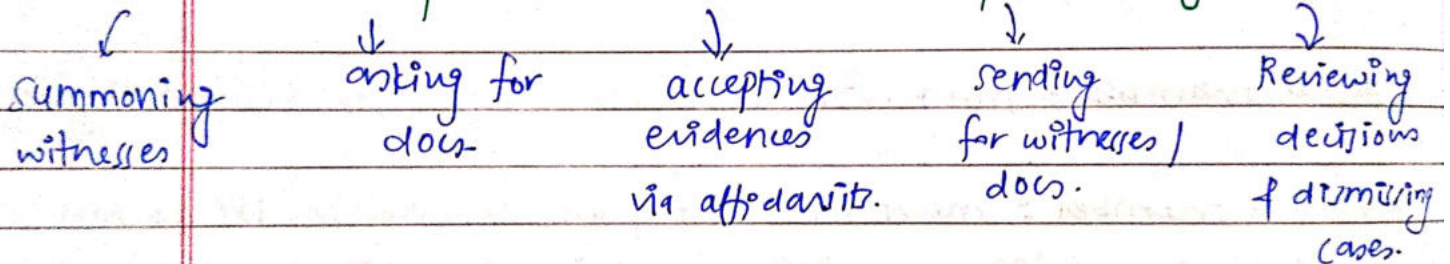 summoning witnesses
asking for docs
accepting evidences via affidavits.
sending for witnesses / docs.
Reviewing decisions & dismissing cases.